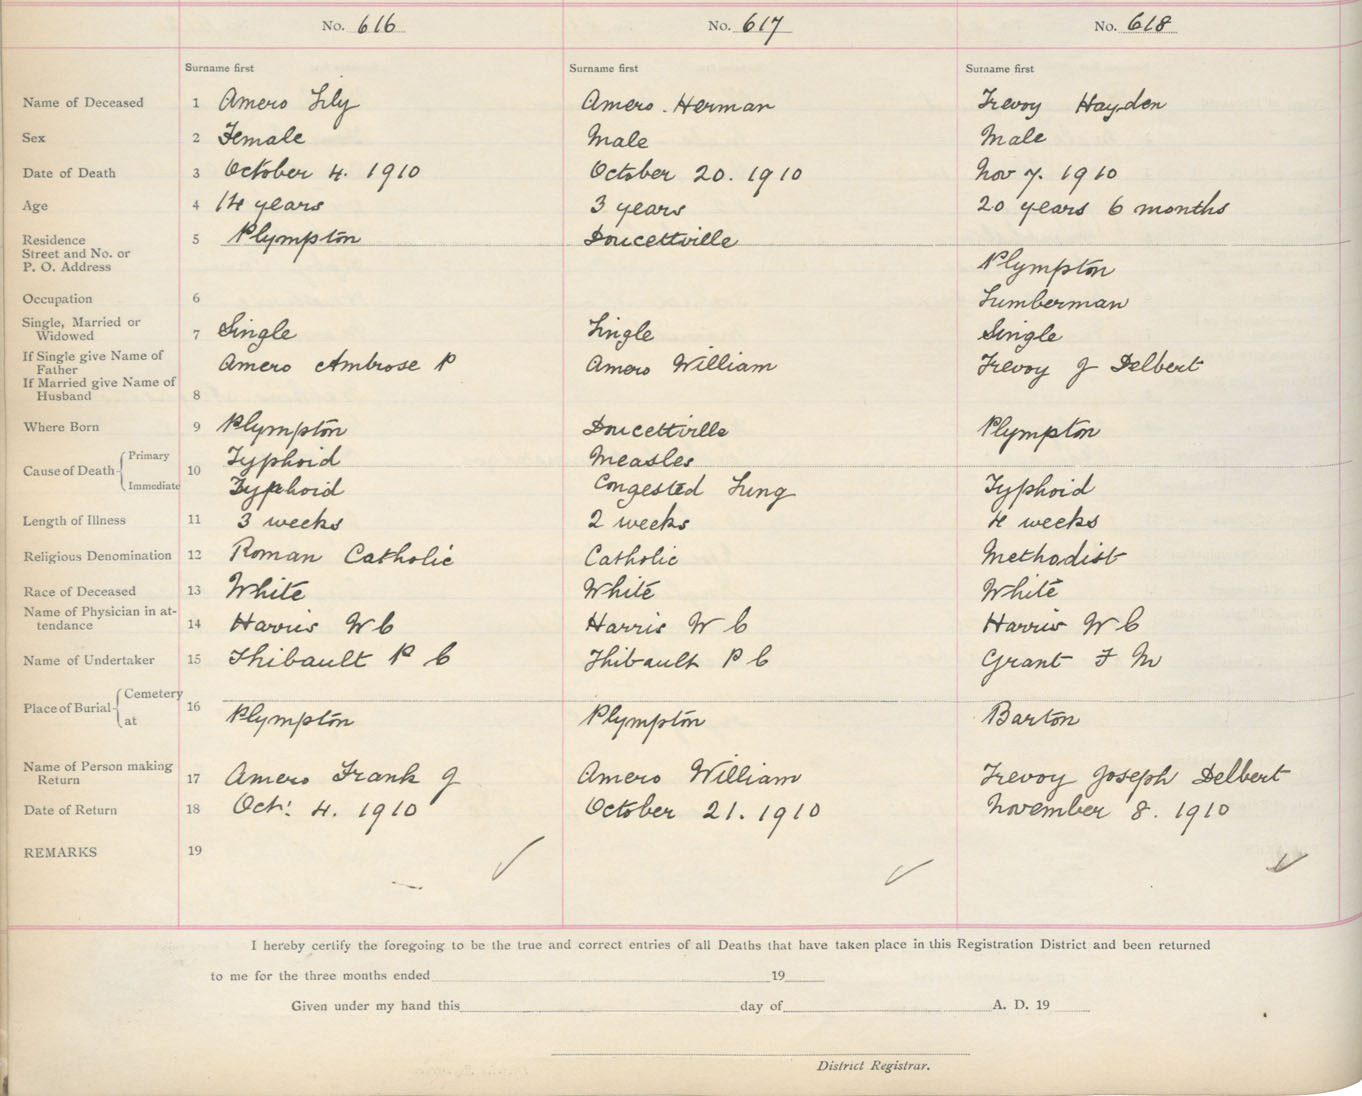 No. 616 No. 617 No. 618
Surname first Surname first Surname first
Name of Deceased 1 Amero Lily Amero. Herman Trevoy Hayden
Sex 2 Female Male Male
Date of Death 3 October 4. 1910 October 20. 1910 Nov 7. 1910
Age 4 14 years 3 years 20 years 6 months
Residence 5 Plympton Doucettville
Street and No. or
P. O. Address Plympton
Occupation 6 Lumberman
Single, Married or
Widowed 7 Single Single Single
If Single give Name of
Father Amero Ambrose P Amero William Trevoy J Delbert
If Married give Name of
Husband 8
Where Born 9 Plympton Doucettville Plympton
Cause of Death Primary 10 Typhoid Measles
Immediate Typhoid Congested Lung Typhoid
Length of Illness 11 3 weeks 2 weeks 4 weeks
Religious Denomination 12 Roman Catholic Catholic Methodist
Race of Deceased 13 White White White
Name of Physician in at-
tendance 14 Harris W C Harris W C Harris W C
Name of Undertaker 15 Thibault P C Thibault P C Grant F M
Place of Burial Cemetery 16
at Plympton Plympton Barton
Name of Person making
Return 17 Amero Frank J Amero William Trevoy Joseph Delbert
Date of Return 18 Oct: 4. 1910 October 21. 1910 November 8. 1910
REMARKS 19
I hereby certify the foregoing to be the true and correct entries of all Deaths that have taken place in this Registration District and been returned
to me for the three months ended 19
Given under my hand this day of A. D. 19
District Registrar.